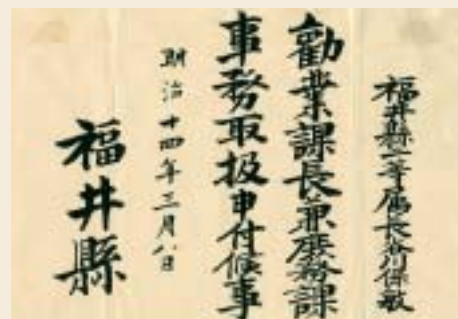 福井縣一等属長谷川保敬
勸業課長兼庶務課
事務取扱申付候事
明治十四年三月八日
福井縣